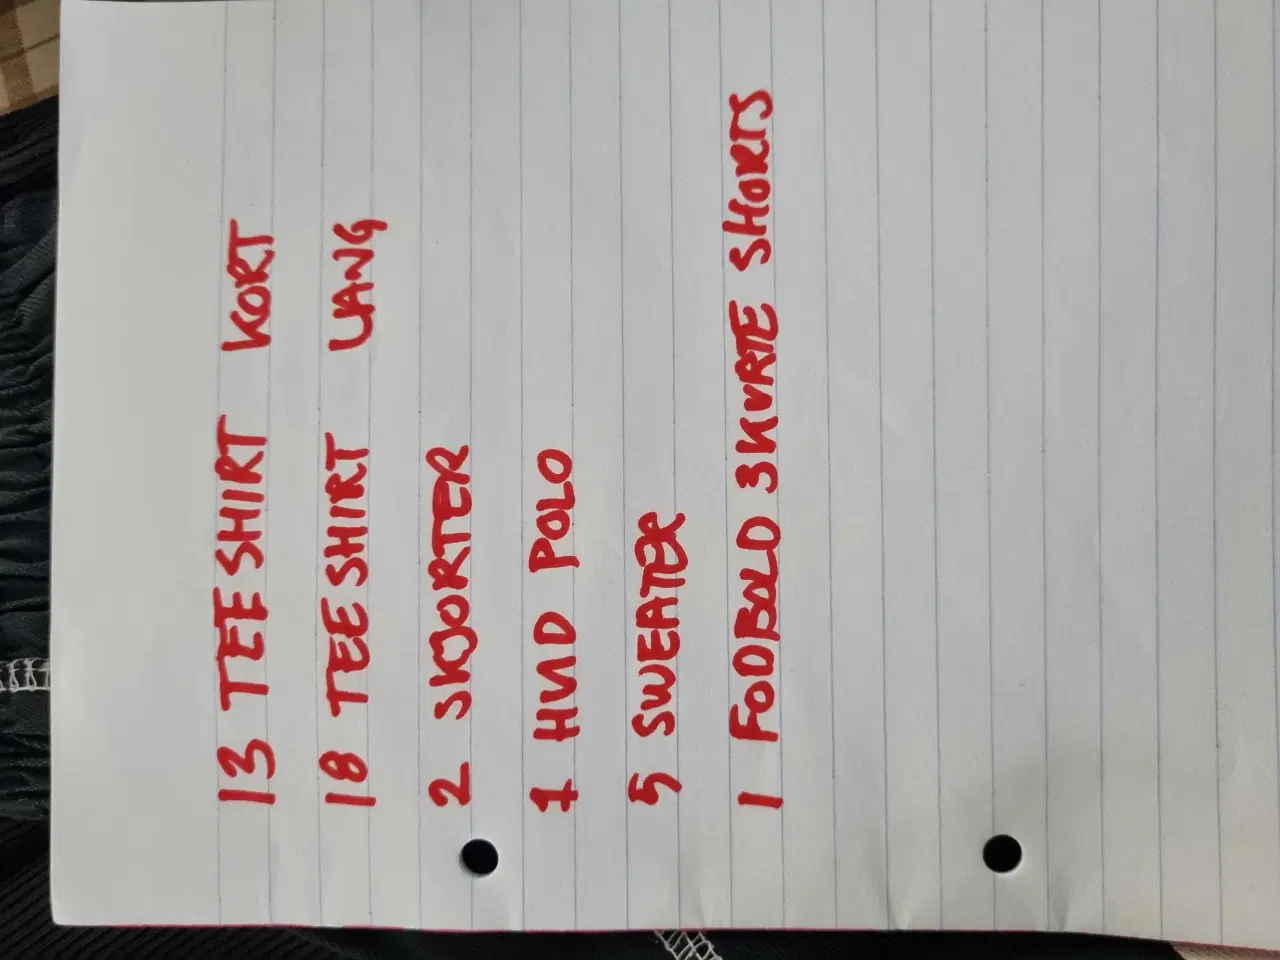 13 TEE SHIRT KORT
18 TEE SHIRT LANG
2 SKJORTER
1 HVID POLO
5 SWEATER
1 FODBOLD 3KVRTE SHORTS